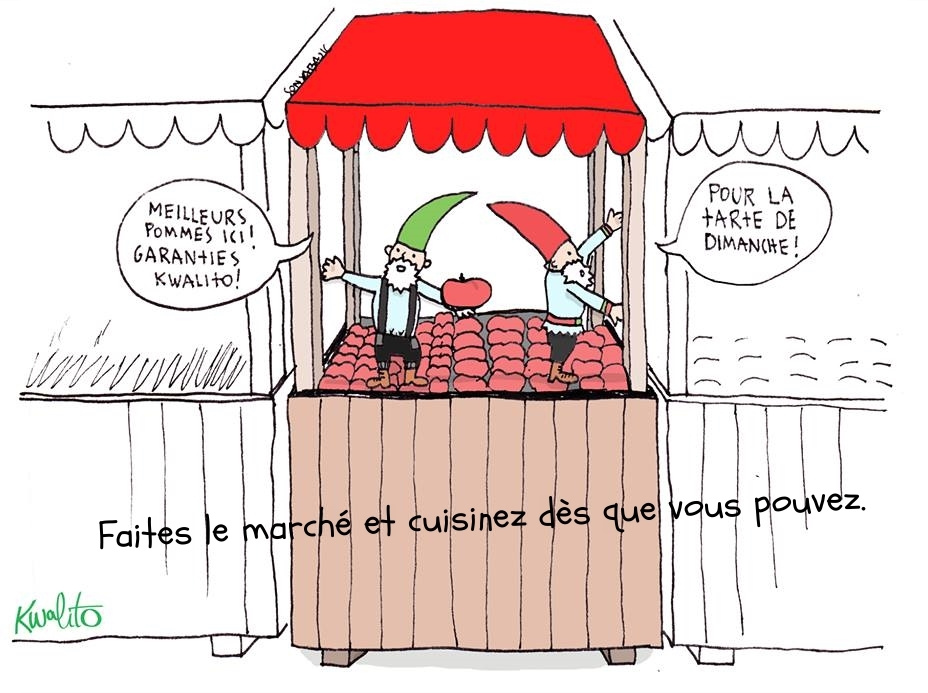 MEILLEURS
POMMES ICI!
GARANTIES
KWALITO!
POUR LA
TARTE DE
DIMANCHE!
Faites le marché et cuisinez dès que vous pouvez.
Kwalito